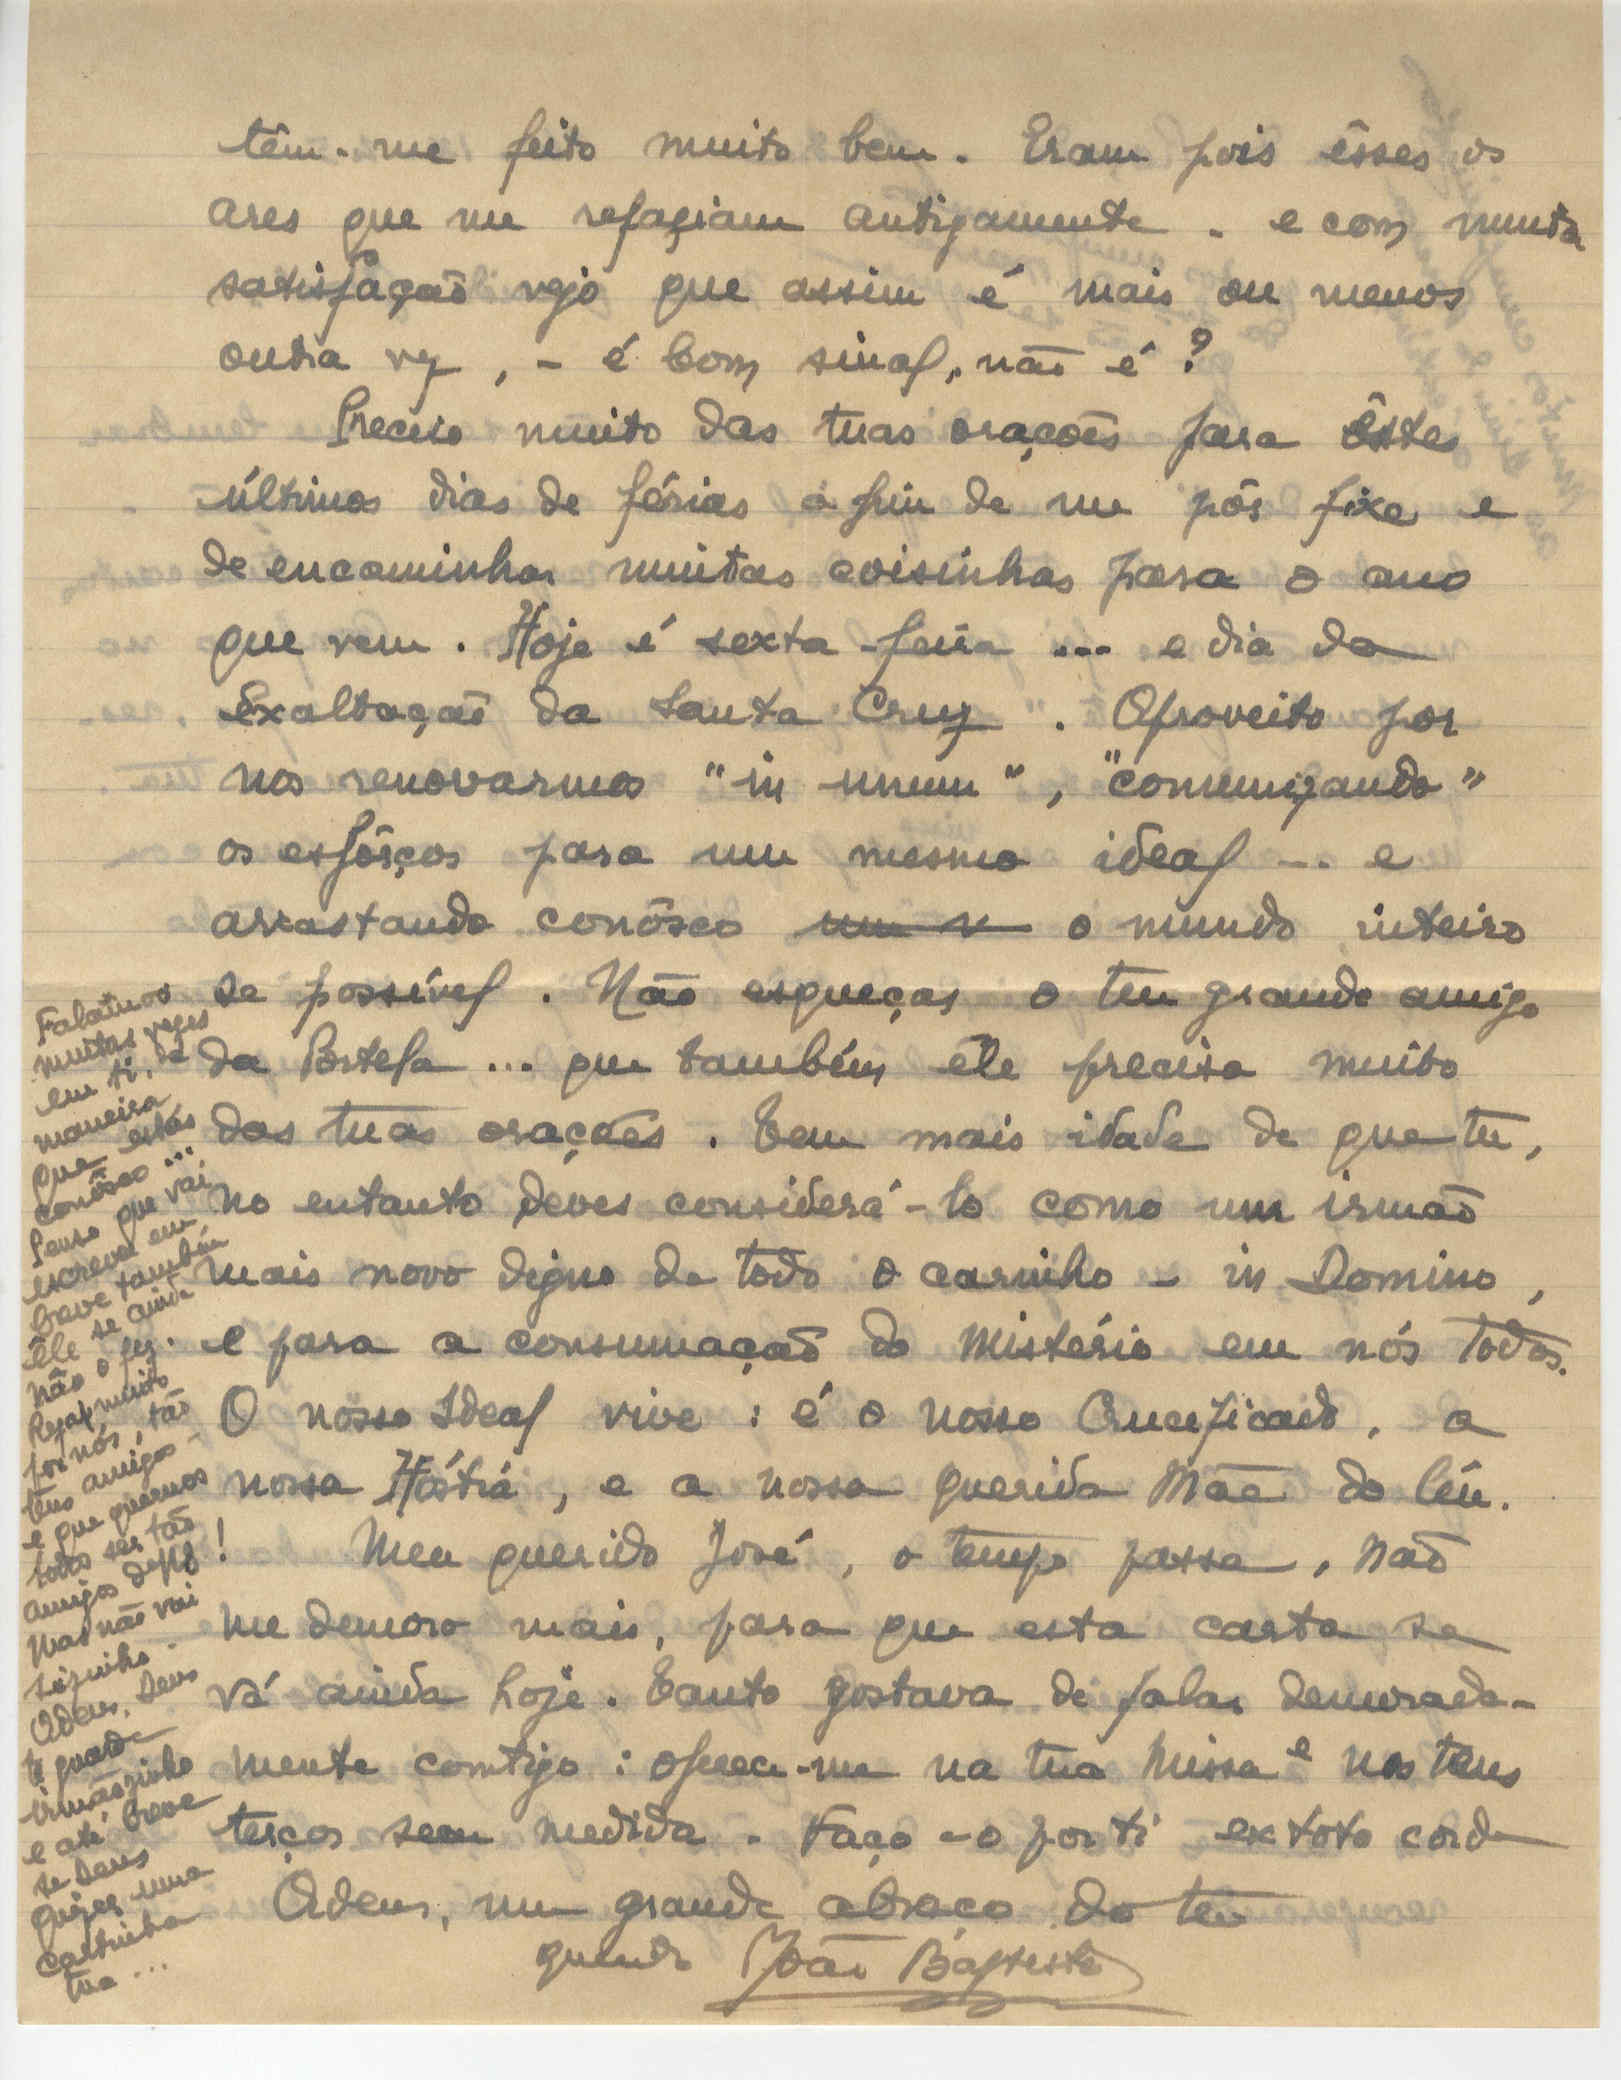 têm-me feito muito bem. Eram pois êsses os
ares que me refaziam antigamente - e com muita
satisfação vejo que assim é mais ou menos
outra vez, - é bom sinal, não é?
Preciso muito das tuas orações para êstes
últimos dias de férias a fim de me pôr fixe e
de encaminhar muitas coisinhas para o ano
que vem. Hoje é sexta-feira ... e dia da
Exaltação da Santa Cruz. Aproveito por
nos renovarmos "in unum", "comunizando"
os esforços para um mesmo ideal ... e
arrastando conôsco um v o mundo inteiro
se possível. Não esqueças o teu grande amigo
da Portela ... que também êle precisa muito
das tuas orações. Tem mais idade de que tu,
no entanto deves considerá-lo como um irmão
mais novo digno de todo o carinho - in Domino,
e para a consumação do Mistério em nós todos.
O nosso Ideal vive: é o nosso Crucificado, a
nossa Hóstia, e a nossa querida Mãe do Céu.
Meu querido José, o tempo passa, não
me demoro mais, para que esta carta se
vá ainda hoje. Tanto gostava de falar demorada-
mente comtigo: oferece-me na tua Missa e nos teus
terços sem medida. Faço-o por ti ex toto corde
Adeus, um grande abraço do teu
querido João Baptista
Falamos
muitas vezes
em ti, de
maneira
que estás
conôsco ...
Penso que vai
escrever em
breve também
êle se ainda
não o fez.
Reza muito
por nós, tão
teus amigos -
e que queremos
todos ser tão
amigos d'Ele!
Mas não vai
sòzinho -
Adeus, Deus
te guarde
irmãozinho
e até breve
se Deus
quizer uma
cartinha
tua ...